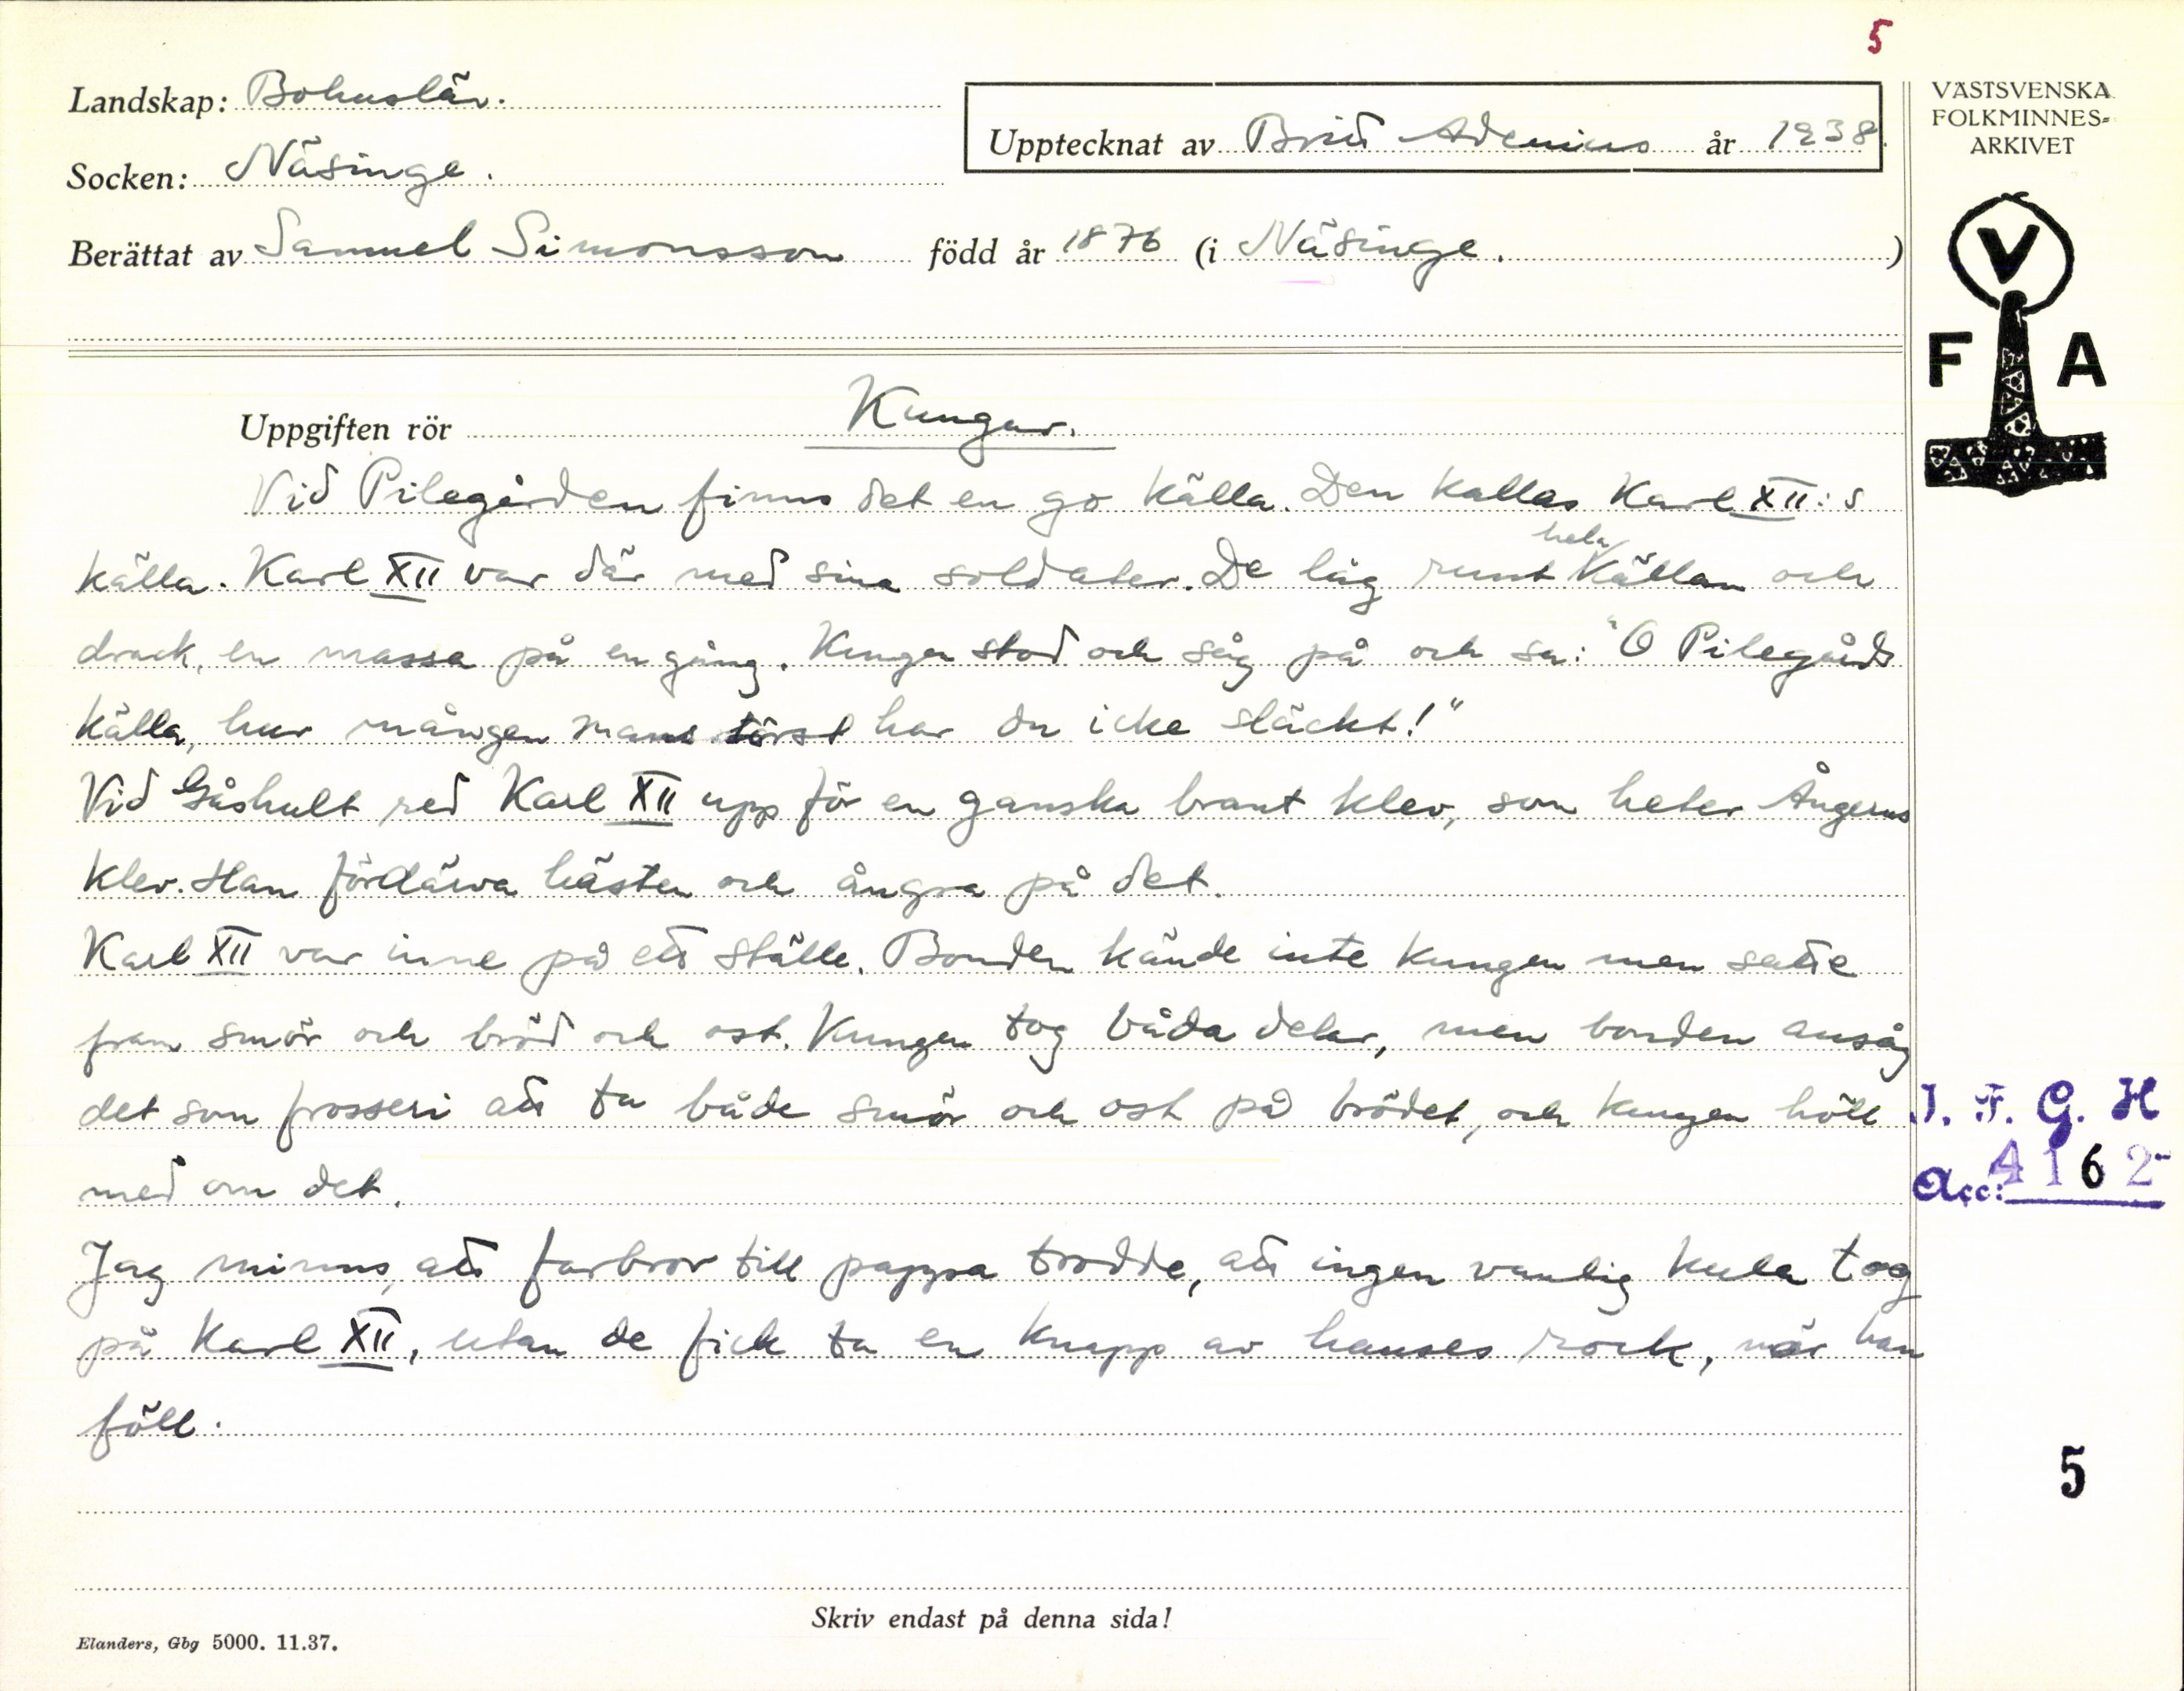 5
Landskap: Bohuslän.
Upptecknat av Britt Adenius år 1938.
VÄSTSVENSKA
FOLKMINNES-
ARKIVET
Socken: Näsinge.
Berättat av Samuel Simonsson född år 1876 (i Näsinge. )
V
F A
Uppgiften rör Kungar.
Vid Pilegården finns det en go källa. Den kallas Karl XII:s
källa. Karl XII var där med sina soldater. De låg runt hela källan och
drack, en massa på en gång. Kungen stod och såg på och sa: "O Pilegårds
källa, hur mången mans törst har du icke släckt!"
Vid Gåshult red Karl XII upp för en ganska brant klev, som heter Ångerns
klev. Han fördärva hästen och ångra på det.
Karl XII var inne på ett ställe. Bonden kände inte kungen men satte
fram smör och bröd och ost. Kungen tog båda delar, men bonden ansåg
det som frosseri att ta både smör och ost på brödet, och kungen höll
med om det.
I. F. G. H
Acc: 4162
Jag minns, att farbror till pappa trodde, att ingen vanlig kula tog
på Karl XII, utan de fick ta en knapp av hanses rock, när han
föll.
5
Skriv endast på denna sida!
Elanders, Gbg 5000. 11.37.